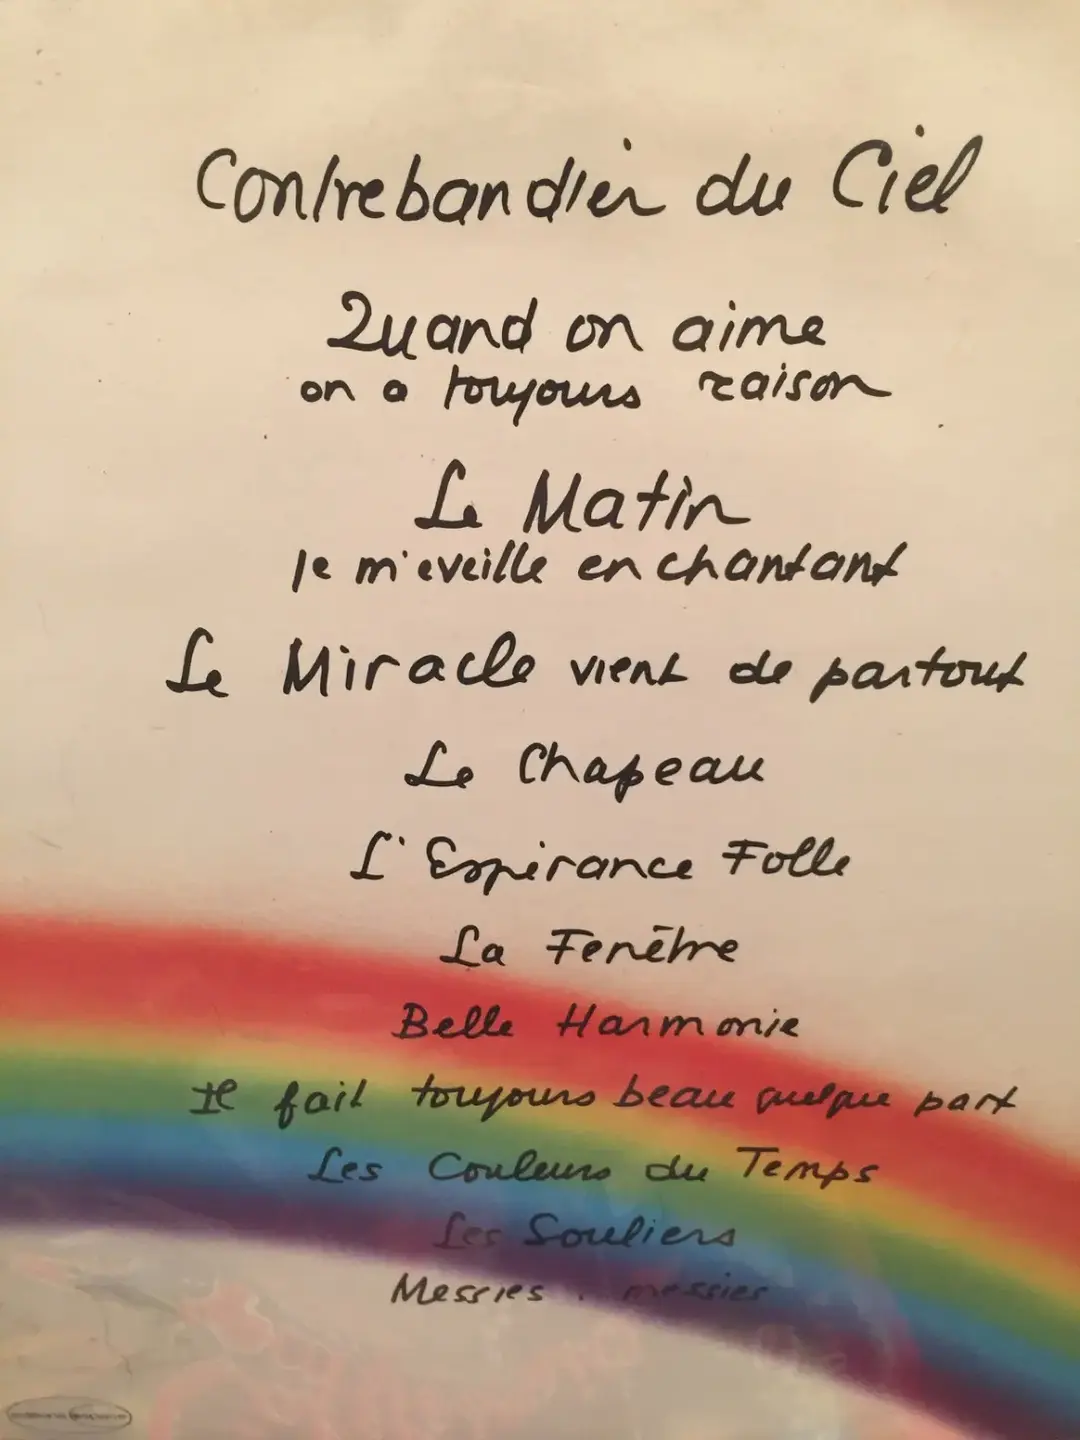 Contrebandier du Ciel
Quand on aime
on a toujours raison
Le Matin
Je m'eveille en chantant
Le Miracle vient de partout
Le Chapeau
L'Espérance Folle
La Fenêtre
Belle Harmonie
Il fait toujours beau quelque part
Les Couleurs du Temps
Les Souliers
Messies. messies